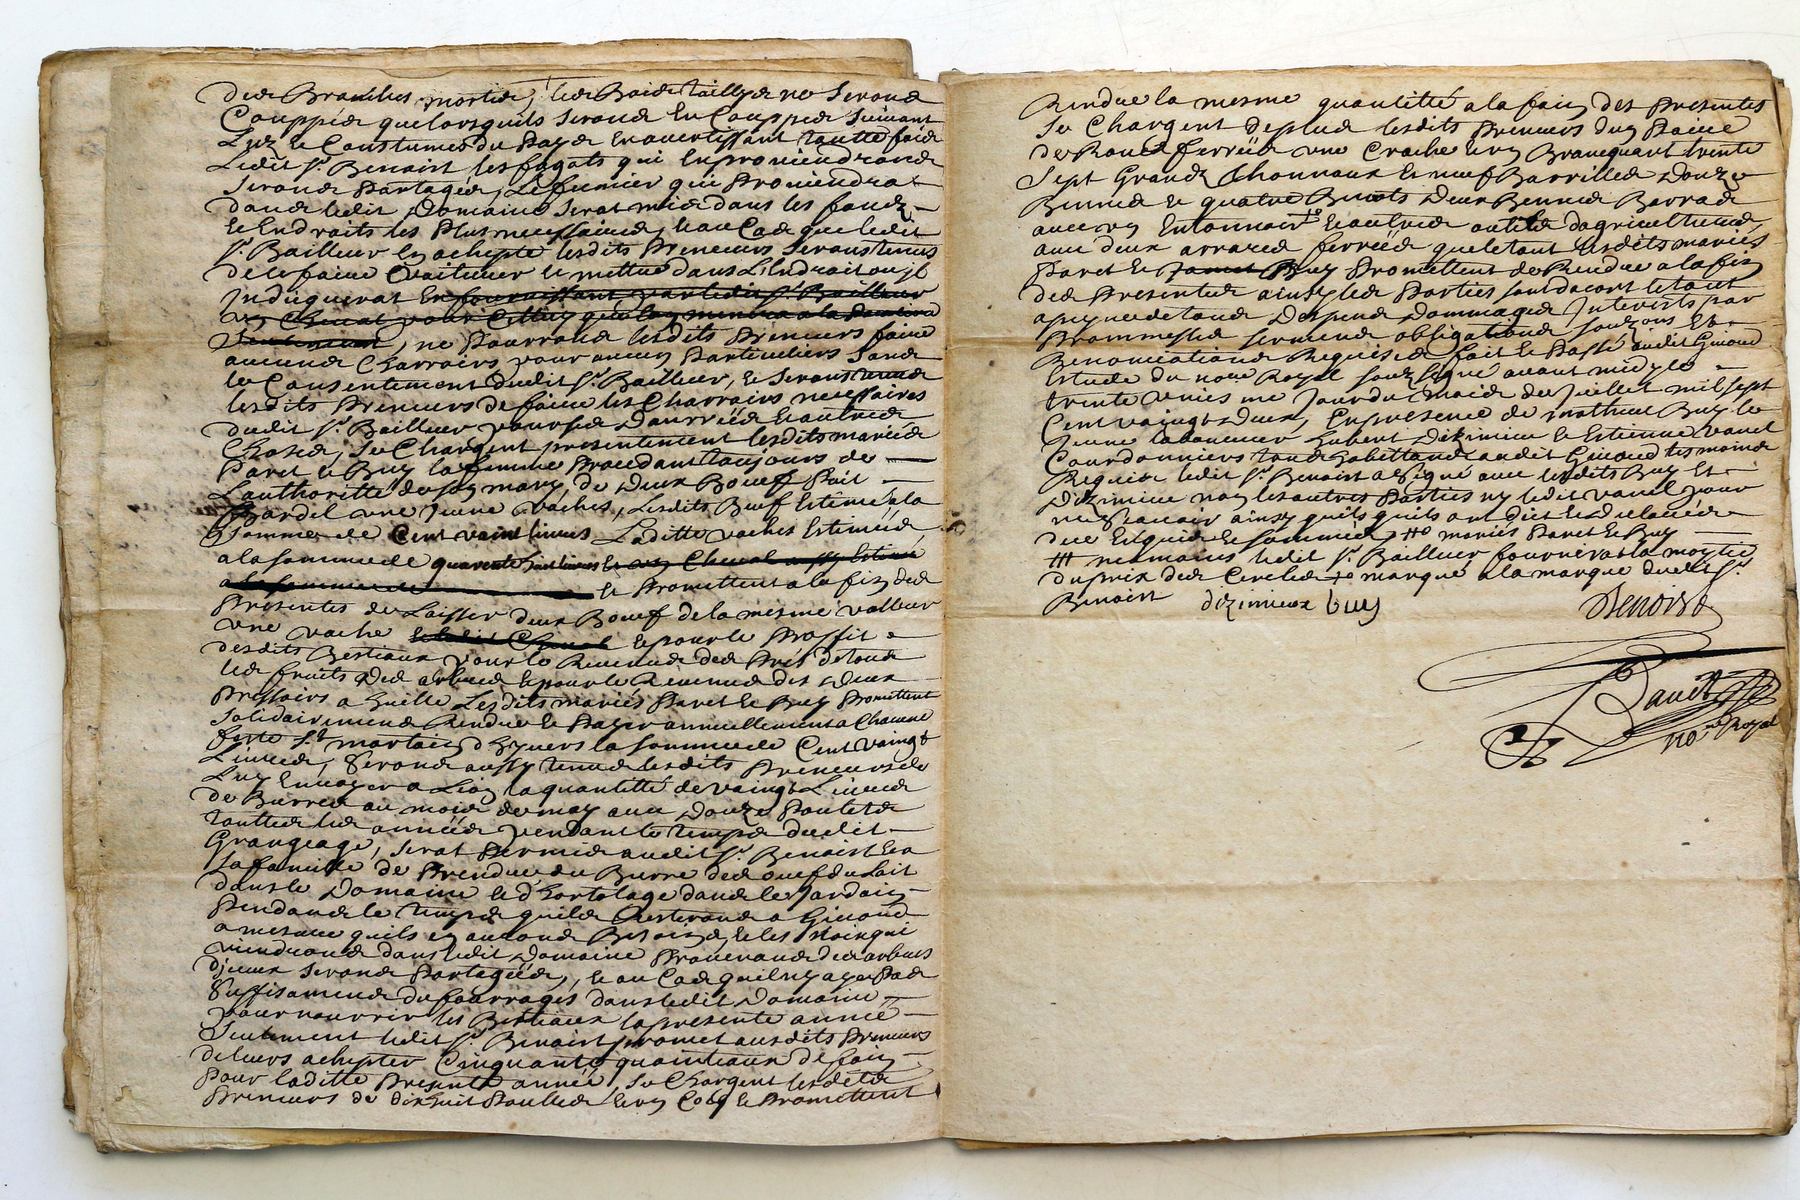 des Branches mortes, les Bois taillys ne seront
Couppés que lorsquils seront En Couppes suivant
Luz et Coustumes du Pays En avertissant touttefois
Ledit Sr. Benoist les fagots qui En proviendront
seront Partagés, Le fumier qui Proviendra
dans ledit Domaine serat mis dans les fonds
et Endroits les Plus necessaires, et au Cas que ledit
Sr. Bailleur En achepte lesdits Preneurs seront tenus
de le faire Voiturer et mettre dans L'Endroit ou il
Indiquerat En fournissant par ledit Sr. Bailleur
un Cheval pour Celluy
, ne Pourront lesdits Preneurs faire
aucuns Charrois pour aucuns Particuliers sans
le Consentement dudit Sr. Bailleur, et seront tenus
lesdits Preneurs de faire les Charrois necessaires
dudit Sr. Bailleur pour ses Danrées et autres
Choses, se Chargent presentement lesdits mariés
Paret et Buy la femme Procedant toujours de
L'authoritté de son mary de Deux Boeuf Poit
une Jeune vaches, Lesdits Boeuf Estimé a la
somme de Cent vaint livres Laditte vaches Estimée
a la somme de quarente huit livres et un Cheval aussy Estimé
a la somme de et Promettent a la fin des
Presentes de Laisser Deux Boeuf de la mesme valleur
une vache et ledit Cheval et pour le Proffit
desdits Bestiaux pour le Revenus des Prés de tous
les fruits des arbres et pour le Revenus des Deux
Pressoirs a huille Lesdits mariés Paret et Buy Promettent
solidairement Rendre et Payer annuellement a Chacune
feste St. martain d'hyvers la somme de Cent vaingt
Livres, seront aussy tenus lesdits Preneurs de
Luy Envoyer a Lion la quantitté de vaingt Livres
de Burre au mois de may avec Douze Poulets
touttes les années pendant le temps dudit
Grangeage, serat Permis audit Sr. Benoist et a
sa famille de Prendre du Burre des oeuf du Lait
dans le Domaine et d'hortolage dans les Jardain
Pendant le temps quils Resteront a Givord
a mesure quils en auront Besoins, et les Noix qui
viendront dans ledit Domaine Provenant des arbres
D'iceux seront Partagées, et au Cas quil ny aye Pas
suffisament du fourrages dans ledit Domaine
pour nourrir les Bestiaux la presente année
seulement ledit Sr. Benoist promet ausdits Preneurs
de leurs achepter Cinquante quaintaux de foin
Pour laditte Presente année, se Chargent lesdits
Preneurs de dix huit Poulles et un Coq et Promettent
Rendre la mesme quantitté a la fain des Presentes
se Chargent de plus lesdits Preneurs dun Paire
de Roues ferrées une Croche et un Brancquart trente
sept Grands Thonnaux et neuf Barrilles Douze
Bennes et quatre Benots Deux Bennes
avec un Entonnoir et autres outils dagriculture,
avec deux arraires ferrées que le tout lesdits mariés
Paret et Buy Promettent de Rendre a la fin
des Presentes ainsy les Parties sont dacort le tout
a peyne de tous Despens Dommages Interests par
Prommesse serment obligations soubz ons Et
Renonciations Requises fait et Passé audit Givord
Estude du nore Royal soubzsigné avant midy le
trente unies me Jour du mois de Juillet mil sept
Cent vaingt deux, En presence de mathieu Buy le
Jeune Laboureur hubert Dizimieu et Estienne vanel
Courdonniers tous habittans audit Givord tesmoins
Requis ledit Sr. Benoist a signé avec lesdits Buy Et
Dizimieu non les autres Parties ny ledit vanel pour
ne sçavoir ainsy quils quils ont dict et declarés
dece Enquis et sommés mariés Paret et Buy
neamoins ledit Sr. Bailleur fournirat la moytié
du prix des Cercles marqué a la marque dudit Sr.
Benoist dizimieux buy Benoist
no.re Royal